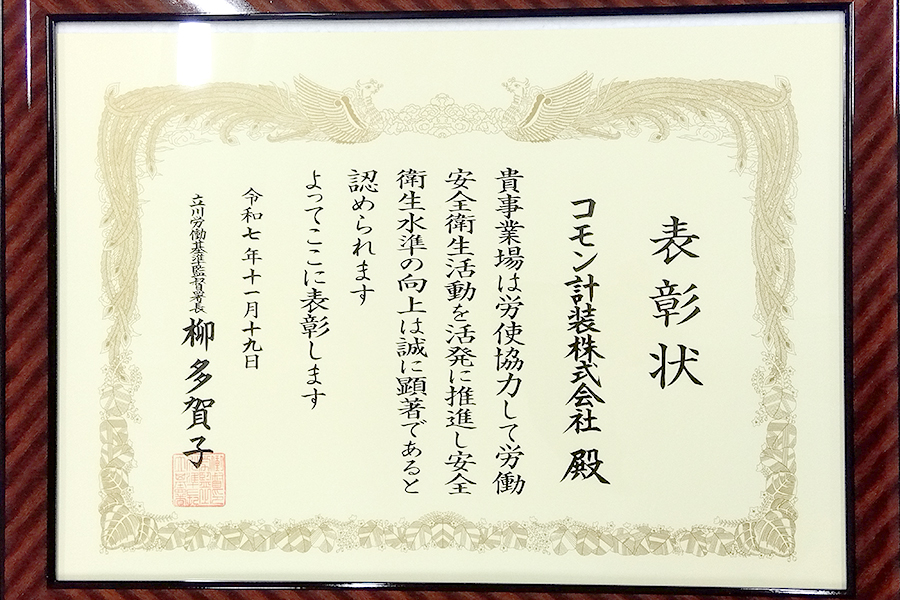 表彰状
コモン計装株式会社 殿
貴事業場は労使協力して労働
安全衛生活動を活発に推進し安全
衛生水準の向上は誠に顕著であると
認められます
よってここに表彰します
令和七年十一月十九日
立川労働基準監督署長 柳多賀子